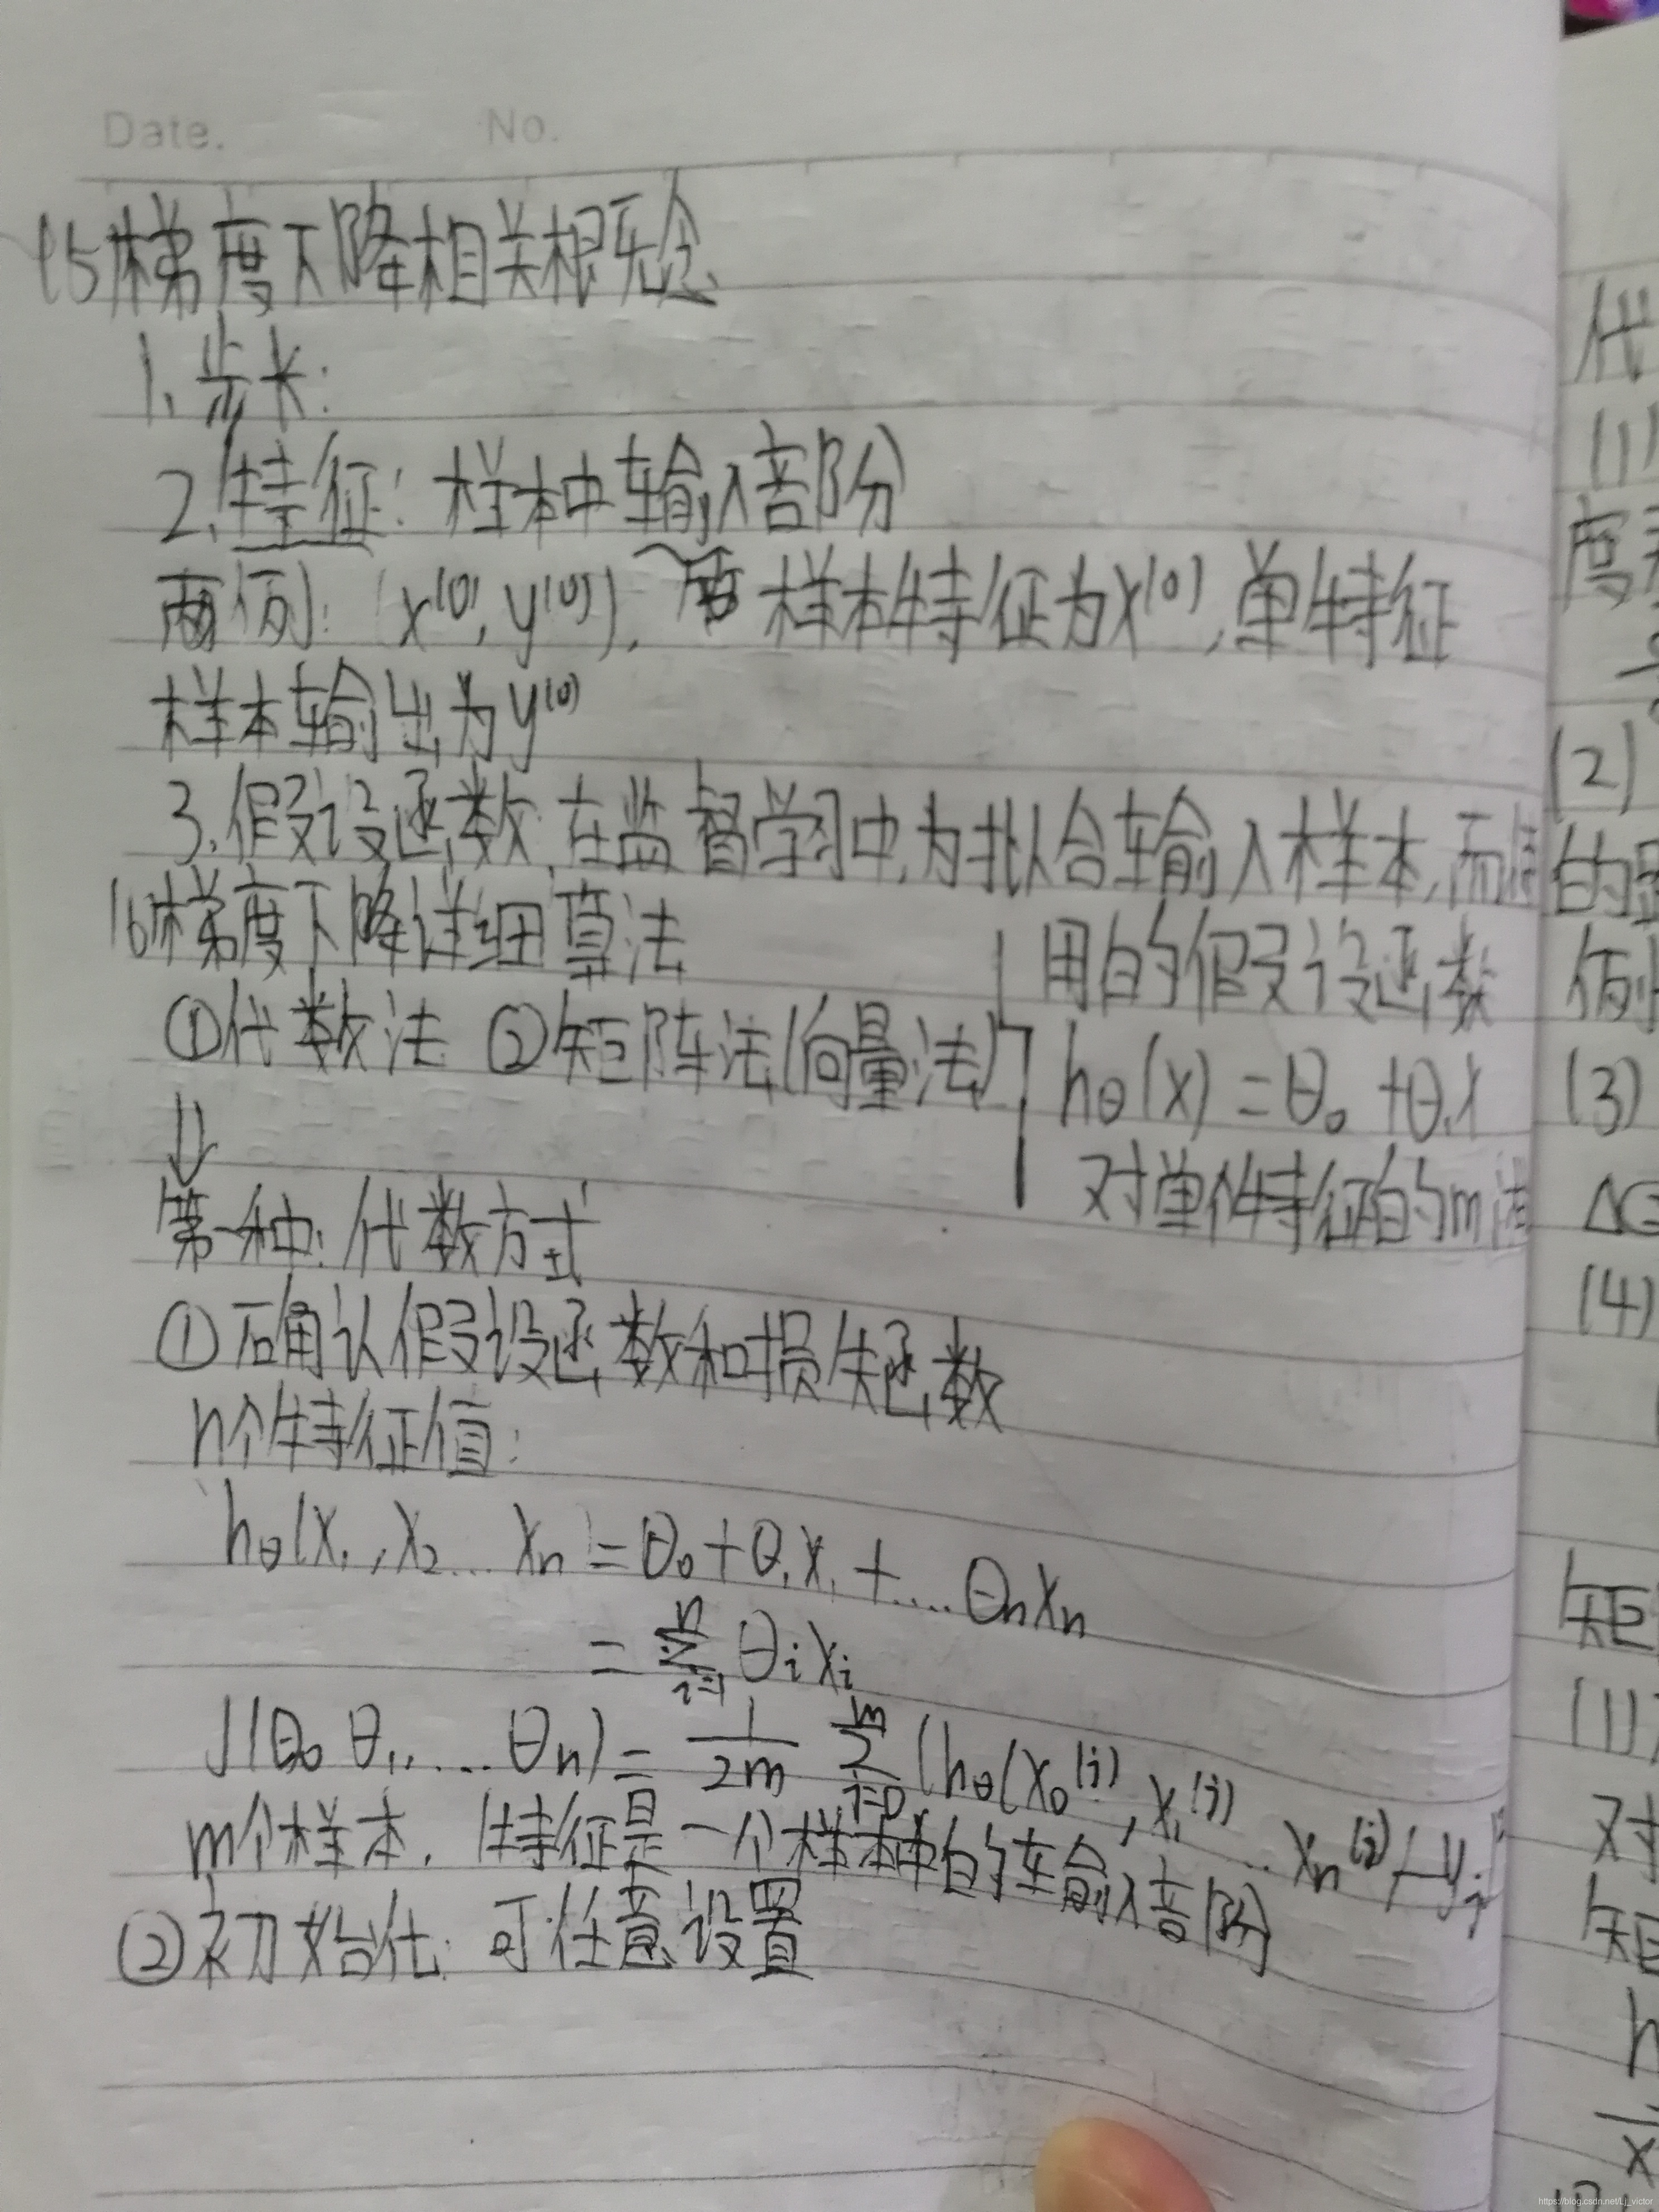 Date. No.
15梯度下降相关概念
1.步长:
2.特征:样本中输入部分
两例:(x⁽⁰⁾,y⁽⁰⁾), 样本特征为x⁽⁰⁾,单特征
样本输出为y⁽⁰⁾
3.假设函数:在监督学习中,为拟合输入样本,而使
用的假设函数
hθ(x)=θ₀+θ₁x
对单个特征的m
16梯度下降详细算法
①代数法 ②矩阵法(向量法)
⇓
第一种:代数方式
①确认假设函数和损失函数
n个特征值:
hθ(x₁,x₂...xn)=θ₀+θ₁x₁+....θnxn
=∑ⁿᵢ₌₁θᵢxᵢ
J(θ₀ θ₁,.....θn)= 1/2m ∑ᵐ (hθ(x₀⁽ʲ⁾,x₁⁽ʲ⁾...xn⁽ʲ⁾)-yⱼ
m个样本.特征是一个样本中的输入部份
②初始化:可任意设置
代
(1)
度
(2)
的
例
(3)
(4)
矩
(1)
对
矩
h
https://blog.csdn.net/Lj_victor